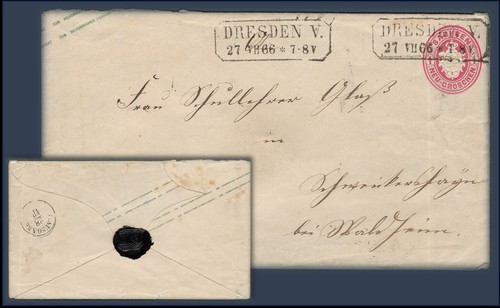 DRESDEN V.
27 VII 66 * 7-8V
DRESDEN V.
27 VII 66 * 7-8V
NEU-GROSCHEN
Frau Schullehrer Glaß
in
Schweikershayn
bei Waldheim.
AUSGABE